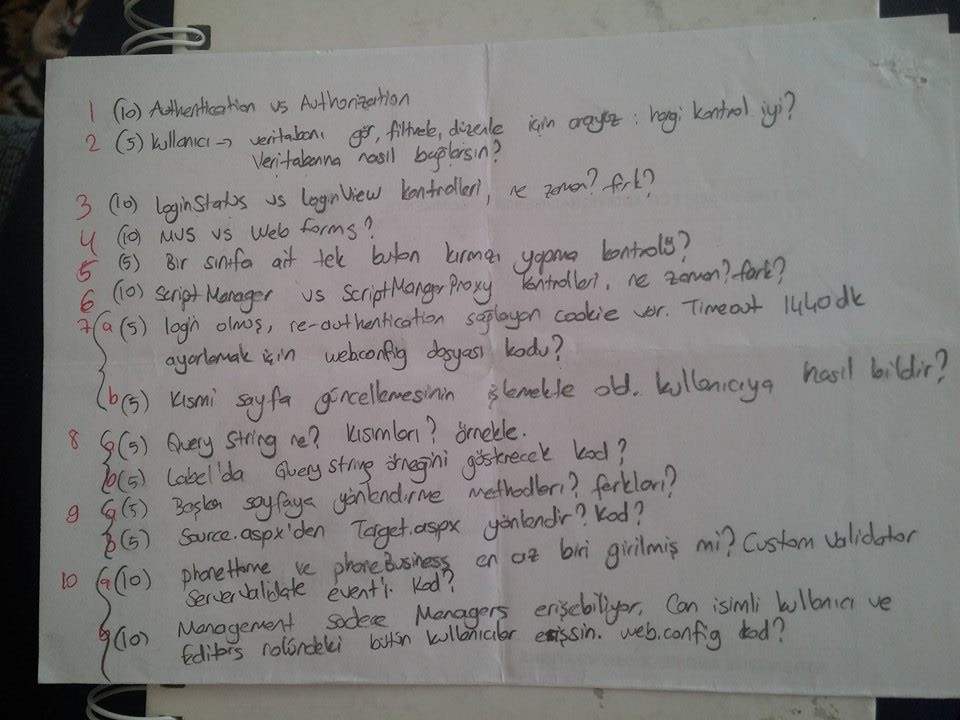 1 (10) Authentication vs Authorization
2 (5) kullanıcı → veritabanı gör, filtrele, düzenle için arayüz : hangi kontrol iyi?
Veritabanına nasıl bağlarsın?
3 (10) loginStatus vs loginView kontrolleri, ne zaman? fark?
4 (10) MVS vs Web forms?
5 (5) Bir sınıfa ait tek buton kırmızı yapma kontrolü?
6 (10) Script Manager vs ScriptMangerProxy kontrolleri. ne zaman? fark?
7 a (5) login olmuş, re-authentication sağlayan cookie var. Timeout 1440 dk
ayarlamak için webconfig dosyası kodu?
b (5) Kısmi sayfa güncellemesinin işlemekte old. kullanıcıya nasıl bildir?
8 a (5) Query String ne? Kısımları? örnekle.
b (5) Label'da Query string örneğini gösterecek kod?
9 a (5) Başka sayfaya yönlendirme methodları? farkları?
b (5) Source.aspx'den Target.aspx yönlendir? Kod?
10 a (10) phoneHome ve phoneBusiness en az biri girilmiş mi? Custom validator
Servervalidate event'i. Kod?
b (10) Management sadece Managers erişebiliyor. Can isimli kullanıcı ve
Editors rolündeki bütün kullanıcılar erişsin. web.config kod?